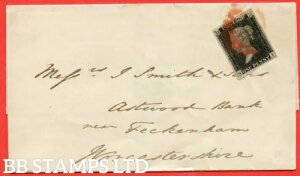 Messrs J Smith & Sons
Astwood Bank
near Feckenham
Worcestershire
ONE PENNY
BB STAMPS LTD